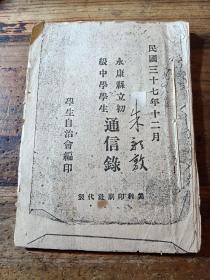 民國三十七年十二月
永康縣立初
級中學學生
通信錄
學生自治會編印
印刷社代製